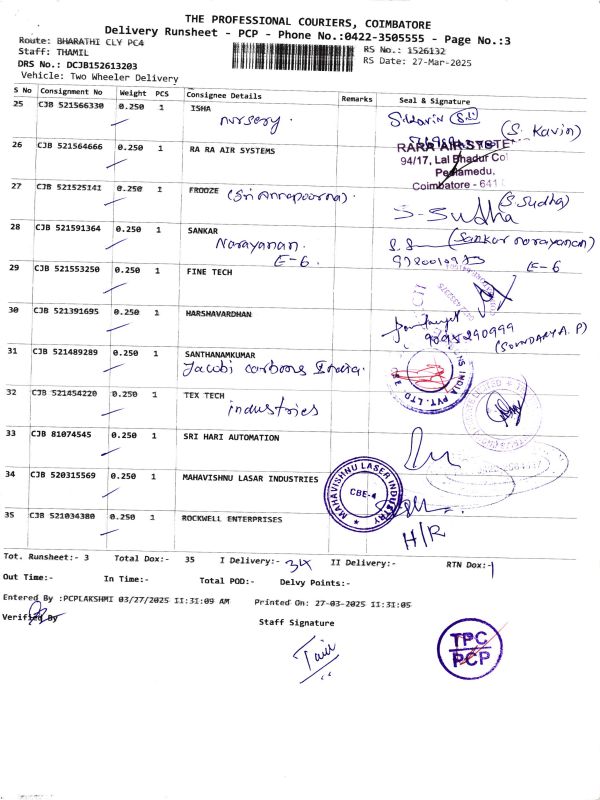 THE PROFESSIONAL COURIERS, COIMBATORE
Delivery Runsheet - PCP - Phone No.:0422-3505555 - Page No.:3
Route: BHARATHI CLY PC4
RS No.: 1526132
Staff: THAMIL
RS Date: 27-Mar-2025
DRS No.: DCJB152613203
Vehicle: Two Wheeler Delivery
S No Consignment No Weight PCS Consignee Details Remarks Seal & Signature
25 CJB 521566330 0.250 1 ISHA
nursery. (S. Kavin)
26 CJB 521564666 0.250 1 RA RA AIR SYSTEMS RARA AIR SYSTE
94/17, Lal Bhadur Col
Peelamedu.
Coimbatore - 641
27 CJB 521525141 0.250 1 FROOZE (Sri Annapoorna). (S.Sudha)
S-Sudha
28 CJB 521591364 0.250 1 SANKAR
Narayanan. (Sankar narayanan)
E-6 E-6
29 CJB 521553250 0.250 1 FINE TECH
30 CJB 521391695 0.250 1 HARSHAVARDHAN
9095290999
(SOUNDARYA.P)
31 CJB 521489289 0.250 1 SANTHANAMKUMAR
Jacobi carbons India. INDIA PVT. LTD
32 CJB 521454220 0.250 1 TEX TECH
industries
33 CJB 81074545 0.250 1 SRI HARI AUTOMATION
34 CJB 520315569 0.250 1 MAHAVISHNU LASAR INDUSTRIES
MAHAVISHNU LASER INDUSTRY
CBE-4
35 CJB 521034380 0.250 1 ROCKWELL ENTERPRISES
H/R
Tot. Runsheet:- 3 Total Dox:- 35 I Delivery:- 34 II Delivery:- RTN Dox:- 1
Out Time:- In Time:- Total POD:- Delvy Points:-
Entered By :PCPLAKSHMI 03/27/2025 11:31:09 AM Printed On: 27-03-2025 11:31:05
Verified By Staff Signature
TPC
PCP